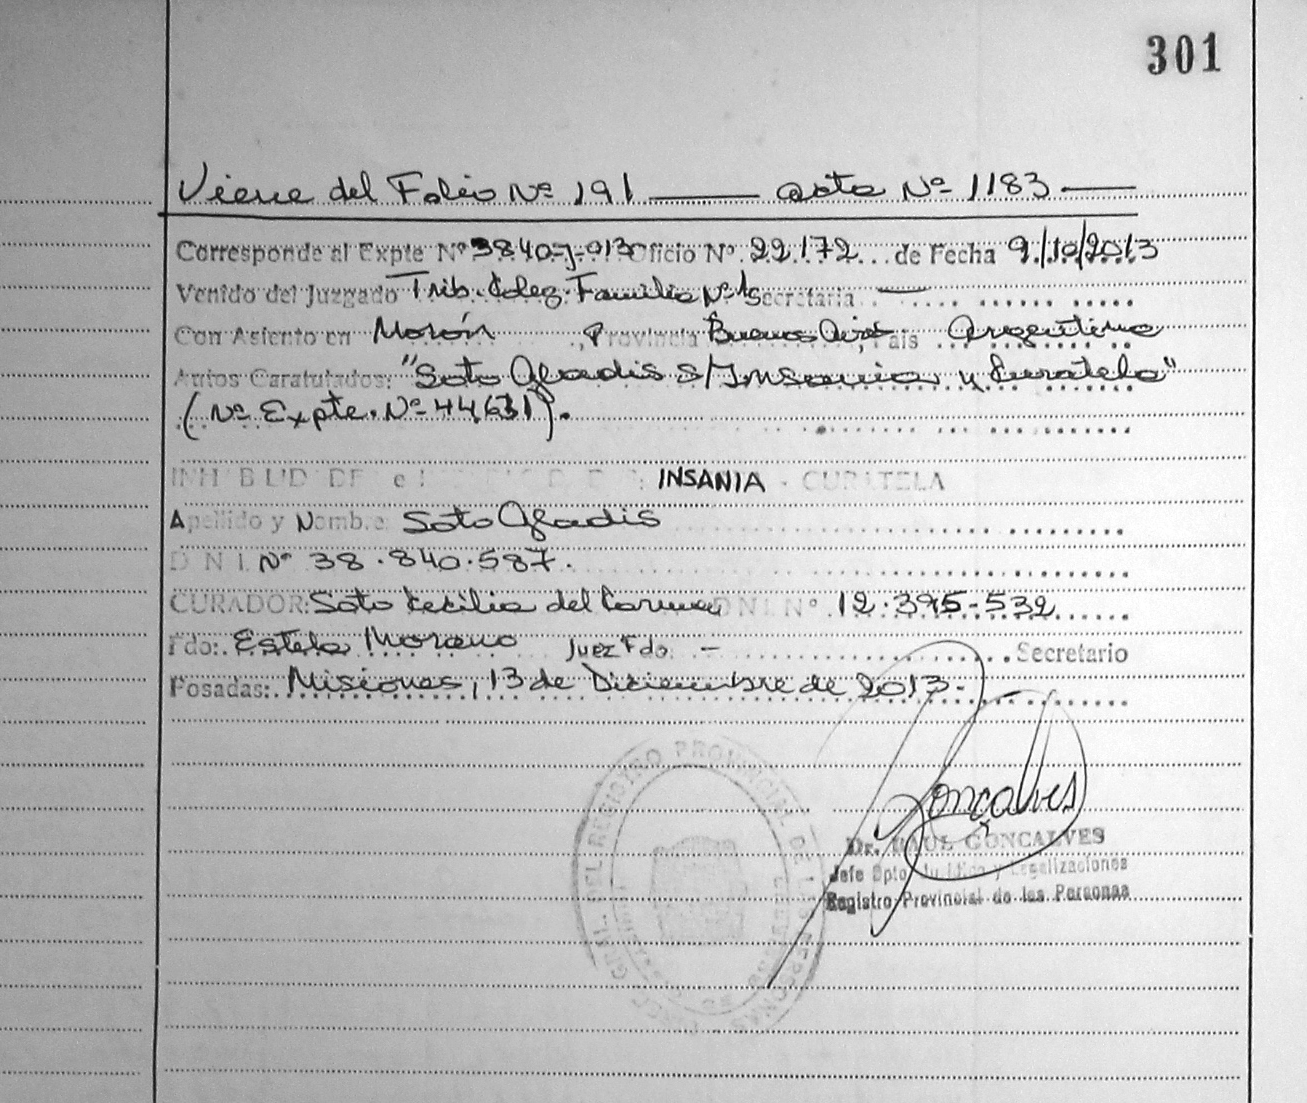 301
Viene del Folio Nº 191 —— acta Nº 1183 ——
Corresponde al Expte Nº 38407-J-013 Oficio Nº 22.172 de Fecha 9/10/2013
Venido del Juzgado Trib. Coleg. Familia Nº 1 Secretaria —
Con Asiento en Morón, Provincia Buenos Aires, Pais Argentina
Autos Caratulados: "Soto Gladis s/Insania y Curatela"
(Nº Expte. Nº 44631).
INSANIA - CURATELA
Apellido y Nombre Soto Gladis
D N I. Nº 38.840.587.
CURADOR: Soto Cecilia del Carmen DNI. Nº 12.395-532
Fdo: Estela Moreno Juez Fdo: - Secretario
Posadas: Misiones, 13 de Diciembre de 2013.-
Gonçalves
Dr. RAUL GONCALVES
Jefe Dpto Juridico y Legalizaciones
Registro Provincial de las Personas
DIRECC. GRAL. DEL REGISTRO PROVINCIAL DE LAS PERSONAS